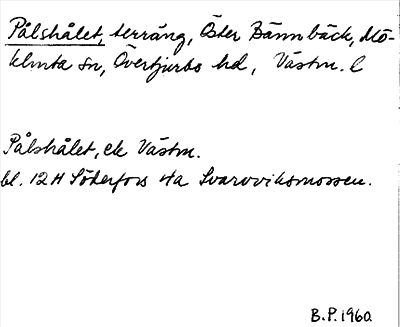 Pålshålet, terräng, Öster Bännbäck, Mö-
klinta sn, Övertjurbo hd, Västm. l
Pålshålet, ek Västm.
bl. 12 H Söderfors 4a Svarvviksmossen.
B.P. 1960